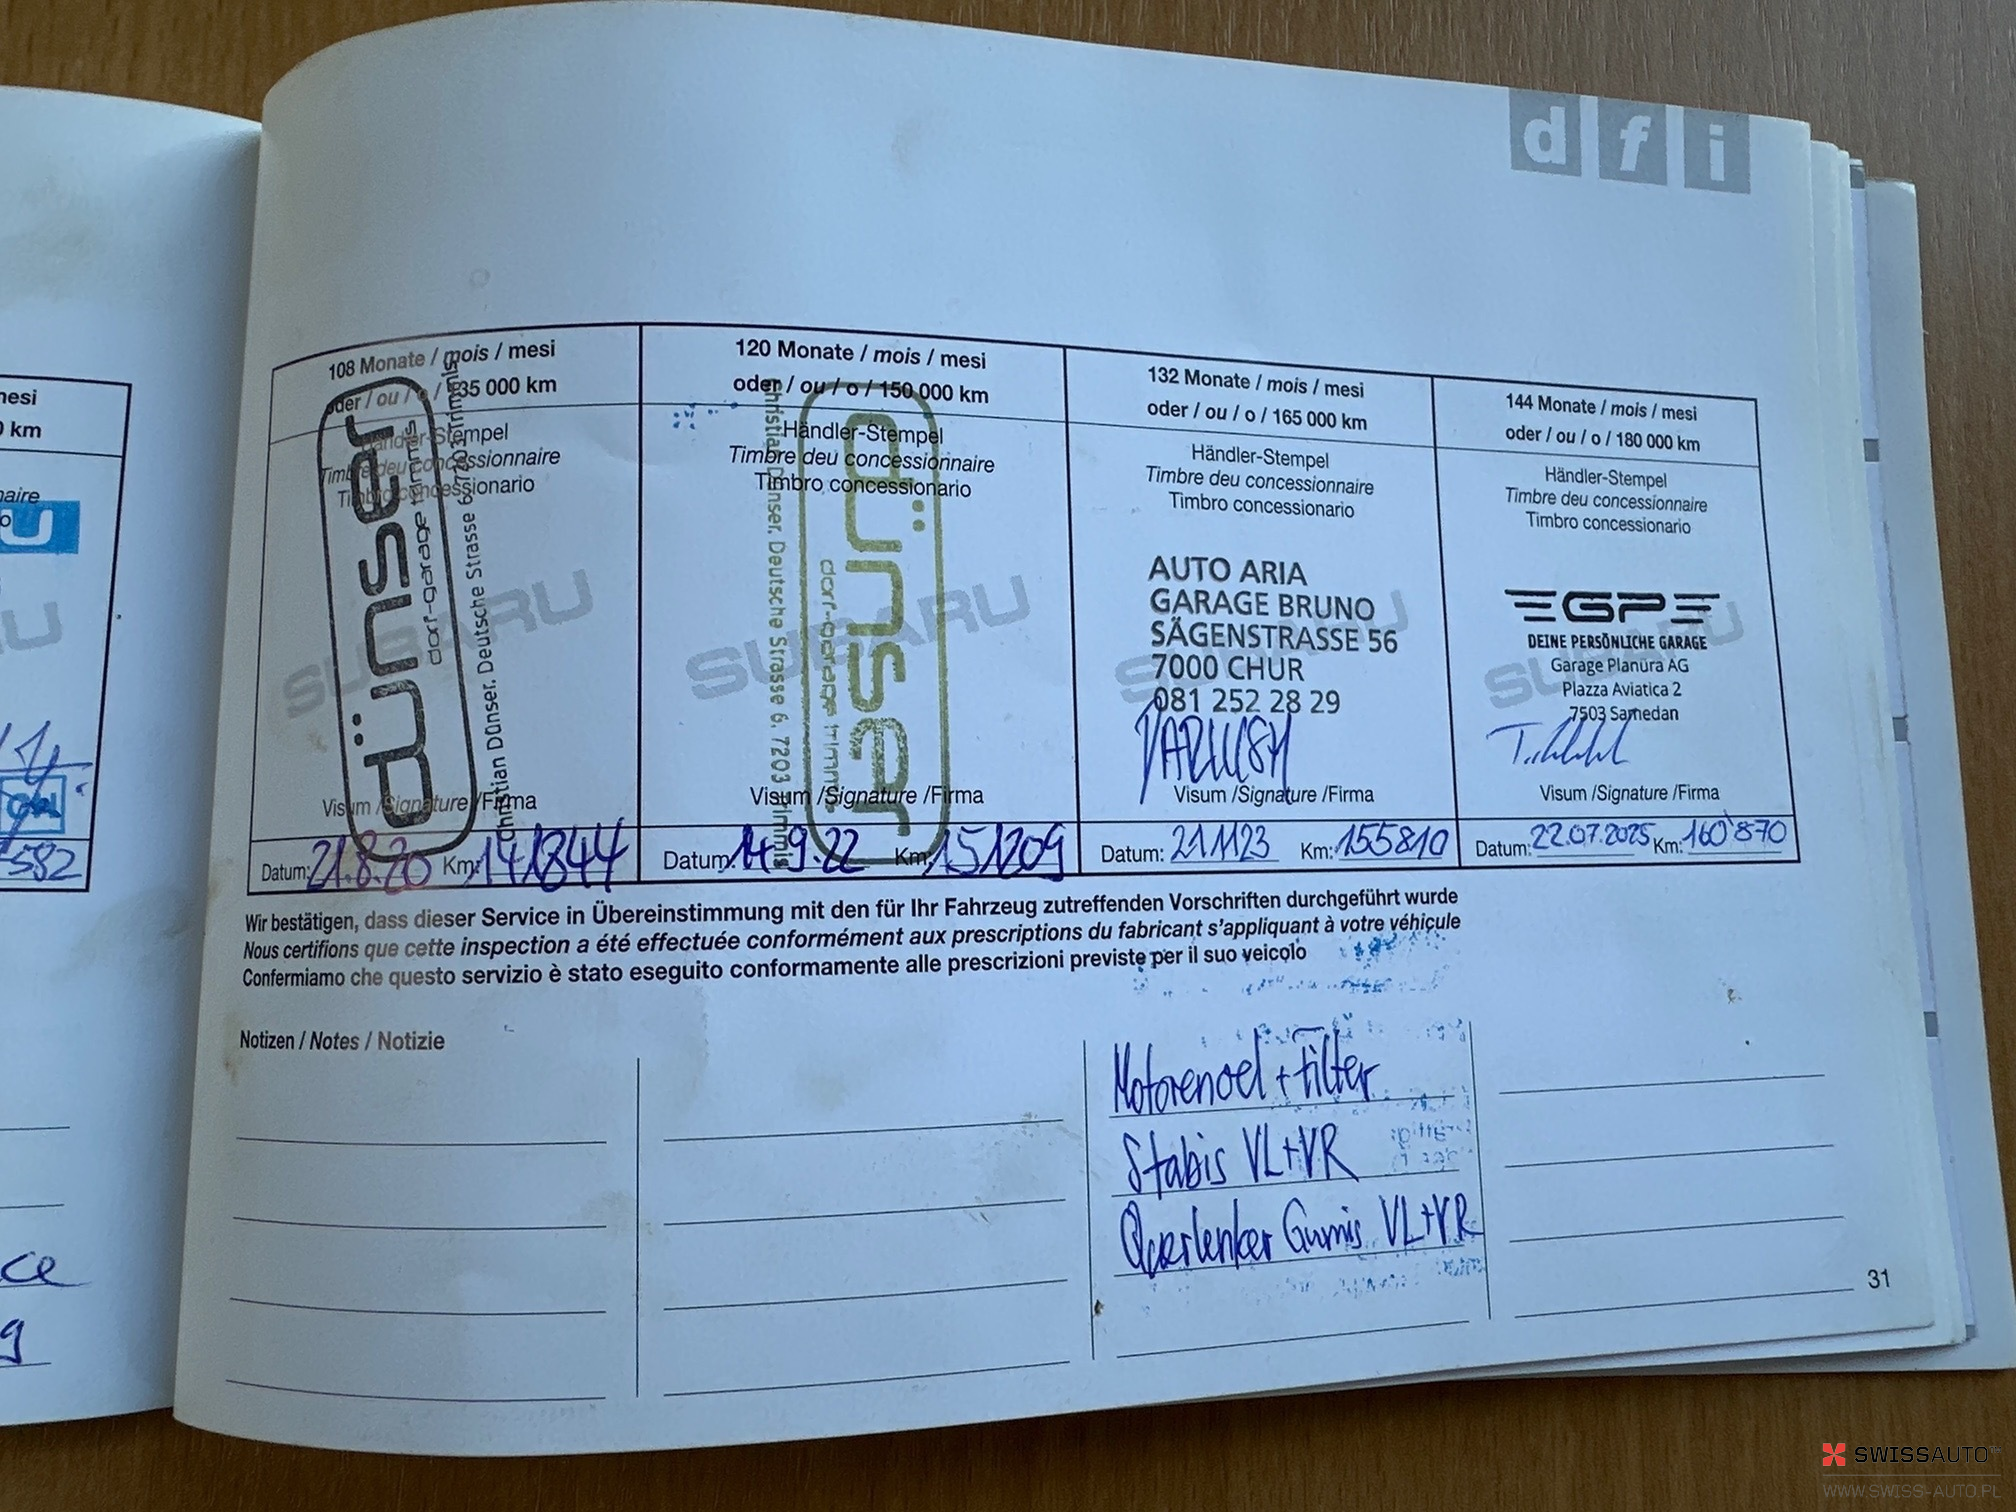 d f i
nesi
0 km
naire
U
582
ce
g
108 Monate / mois / mesi
oder / ou / o / 135 000 km
Händler-Stempel
Timbre deu concessionnaire
Timbro concessionario
SUBARU
dünser
dorf-garage trimmis
Christian Dünser. Deutsche Strasse 6. 7203 Trimmis
Visum /Signature /Firma
Datum: 21.8.20 Km: 141844
120 Monate / mois / mesi
oder / ou / o / 150 000 km
Händler-Stempel
Timbre deu concessionnaire
Timbro concessionario
SUBARU
dünser
dorf-garage trimmis
Christian Dünser. Deutsche Strasse 6. 7203 Trimmis
Visum /Signature /Firma
Datum: 14.9.22 Km: 151209
132 Monate / mois / mesi
oder / ou / o / 165 000 km
Händler-Stempel
Timbre deu concessionnaire
Timbro concessionario
SUBARU
AUTO ARIA
GARAGE BRUNO
SÄGENSTRASSE 56
7000 CHUR
081 252 28 29
Visum /Signature /Firma
Datum: 21.11.23 Km: 155810
144 Monate / mois / mesi
oder / ou / o / 180 000 km
Händler-Stempel
Timbre deu concessionnaire
Timbro concessionario
SUBARU
GP
DEINE PERSÖNLICHE GARAGE
Garage Planüra AG
Plazza Aviatica 2
7503 Samedan
Visum /Signature /Firma
Datum: 22.07.2025 Km: 160'870
Wir bestätigen, dass dieser Service in Übereinstimmung mit den für Ihr Fahrzeug zutreffenden Vorschriften durchgeführt wurde
Nous certifions que cette inspection a été effectuée conformément aux prescriptions du fabricant s'appliquant à votre véhicule
Confermiamo che questo servizio è stato eseguito conformamente alle prescrizioni previste per il suo veicolo
Notizen / Notes / Notizie
Motorenoel + Filter
Stabis VL+VR
Querlenker Gumis VL+VR
31
SWISSAUTO
WWW.SWISS-AUTO.PL